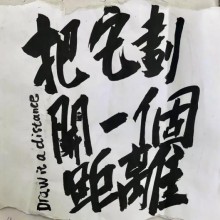 把它劃
開一個
距離
Draw it a distance